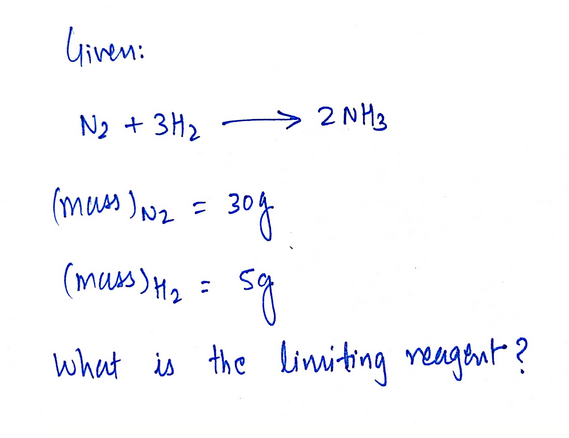 Given:
N2 + 3H2 ⟶ 2NH3
(mass)N2 = 30g
(mass)H2 = 5g
What is the limiting reagent?